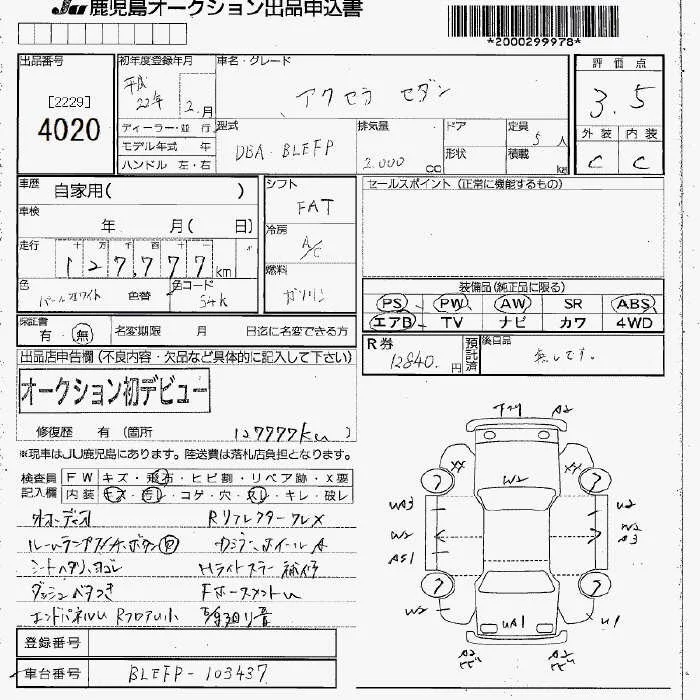 JU 鹿児島オークション出品申込書
*2000299978*
出品番号
[2229]
4020
初年度登録年月
平成 22年 2月
車名・グレード
アクセラ セダン
評価点
3.5
外装 内装
C C
ディーラー・並行
モデル年式 年
ハンドル 左・右
型式
DBA-BLEFP
排気量
2.000 cc
ドア
形状
定員
5人
積載
kg
車歴 自家用( )
車検 年 月( 日)
走行
十 万 千 百 十 一
127,777 km
色 パールホワイト 色替
色コード 34K
シフト
FAT
冷房
A/C
燃料
ガソリン
セールスポイント (正常に機能するもの)
装備品(純正品に限る)
PS PW AW SR ABS
エアB TV ナビ カワ 4WD
保証書 有・無 名変期限 月 日迄に名変できる方
R券 12840.円
預託済
後日品 無しです。
出品店申告欄(不良内容・欠品など具体的に記入して下さい)
オークション初デビュー
修復歴 有(箇所 127777km)
※現車はJU鹿児島にあります。陸送費は落札店負担となります。
検査員記入欄
FW キズ・飛石・ヒビ割・リペア跡・X要
内装 キズ・汚レ・コゲ・穴・スレ・キレ・破レ
オーディオ Rリフレクターワレ×
ルームランプ
シートヘタリ、ヨゴレ Hライトステー補修
ダッシュベタつき
エンドパネルU RフロアU小
アンテナ A2
XX XX
? ?
W2
UA3 U2
W2 W2
A3
A51
? ?
W2 U1
UA1
A2
ヒビ
A2
ヒビ
登録番号
車台番号 BLEFP-103437